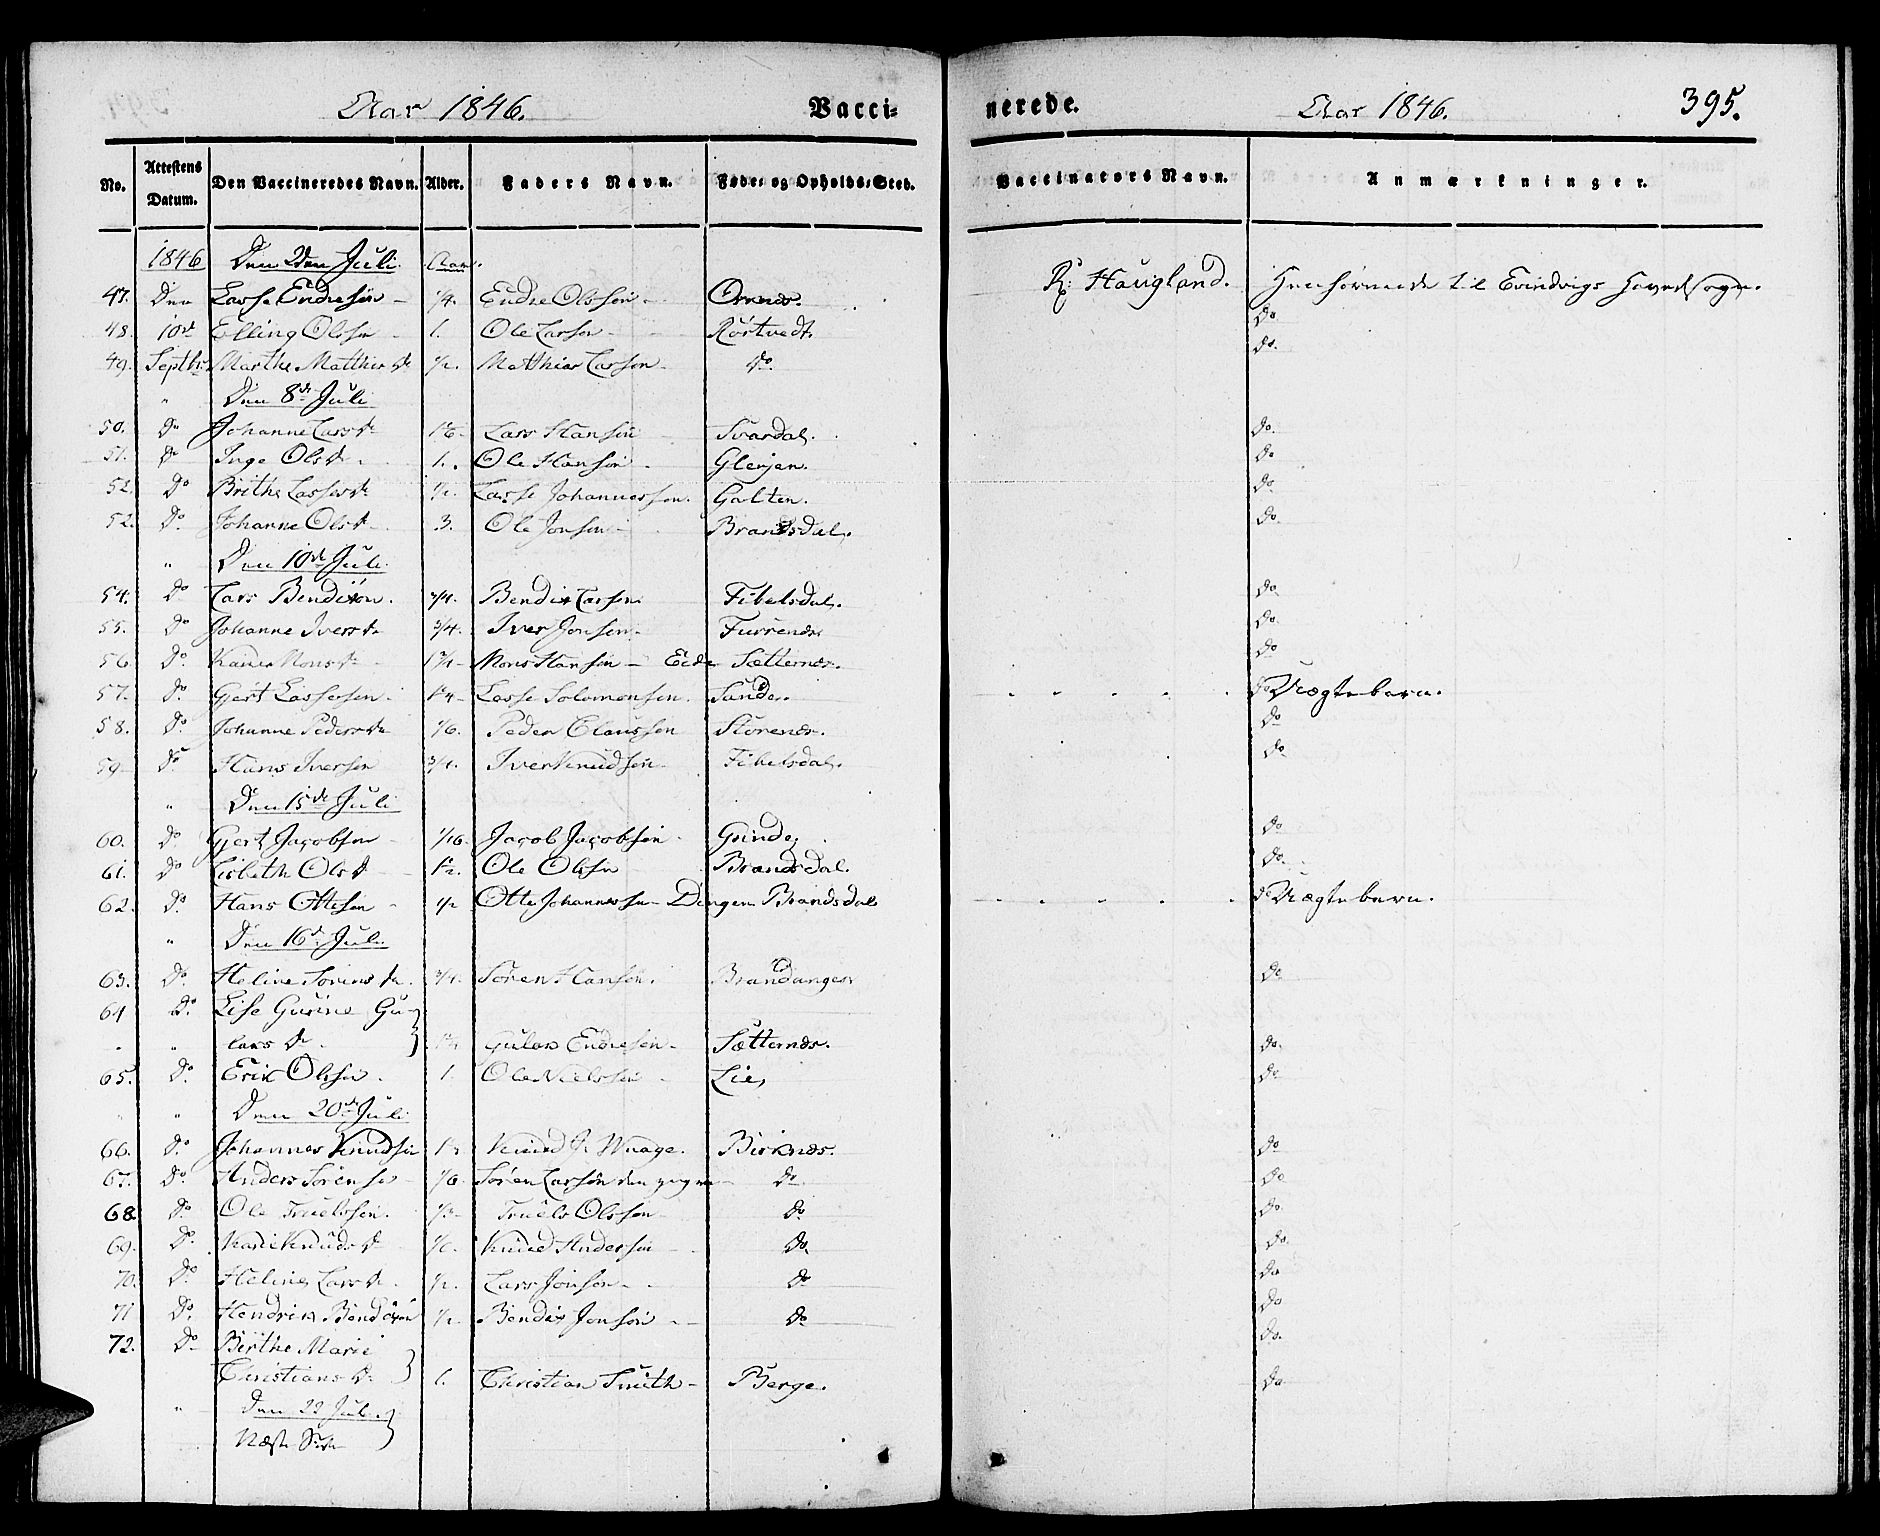 Aar 1846. Vacci- nerede. Aar 1846. 395.
No. Attestens Datum. Den Vaccineredes Navn. Alder. Faders Navn. Føde- og Opholds-Sted. Vaccinators Navn. Anmærkninger.
1846 Den 2den Juli Aar.
47. Den Lasse Endresen 1/4. Endre Olssen Ornes. R: Haugland. Henhørende til Evindvigs Hovedsogn.
48. 10de Elling Olssen 1. Ole Larsen Rørtvedt do
49. Septbr. Marthe Matthiesd. 1/2. Mathias Larsen do. do.
" Den 8de Juli
50. Do Johanne Larsd. Lars Hansen Svardal. do.
51. Do Inge Olsd. 1. Ole Hansen Glenjen. do
52. Do Brithe Lassesd. 1/2. Lasse Johannessen. Galten. do.
52. Do. Johanne Olsd. 3. Ole Jonsen Brandsdal. do.
" Den 10de Juli.
54. Do Lars Bendixøn. 3/4. Bendix Larsen Fibelsdal. do.
55. Do Johanne Iversd. 3/4. Iver Jonsen Furrenes do.
56. Do. Monsd. Mons Hansen Eide Sætternes. do
57. Do. Gjert Lassesen. Lasse Solomonsen. Sande. do Vægtebarn.
58. Do. Johanne Pedersd. 1/6. Peder Claussen Storenes. do
59. Do Hans Iversen 3/4. Iver Knudsen Fibelsdal. do.
" Den 15de Juli
60. Do Gjert Jacobsen 1/16. Jacob Jacobsen Grinde, do
61. Do Lisbeth Olsd. Ole Olsen Brandsdal. do.
62. Do. Hans Ottesen 1/2 Otte Johannessen Dingen Brandsdal do Vægtebarn.
" Den 16de Juli.
63. Do. Heline Sørensd. 3/4. Søren Hansen. Brandanger do
64 Do. Lise Gurine Gu-
" lersd. Gulak Endresen Sætternes. do.
65. Do. Erik Olsen. 1. Ole Nielssen Lie, do
" " Den 20de Juli
66. Do. Johannes Knudsen Knud J. Waage. Birknes. do
67. Do. Anders Sørensen 1/6. Søren Larsen den yngre do do
68. Do. Ole Truelssen. 1/3 Truels Olssen do do.
69. Do. Kari Knudsd. Knud Andersen do. do.
70. Do. Heline Larsd. 1/2. Lars Jonsen do do
71 Do. Hendrik Bendixøn 1/2 Bendix Jonsen do do
72. Do Birthe Marie do.
Christiansd. 1. Christian Smith Berge. do
" Den 22 Juli.
Næste Side